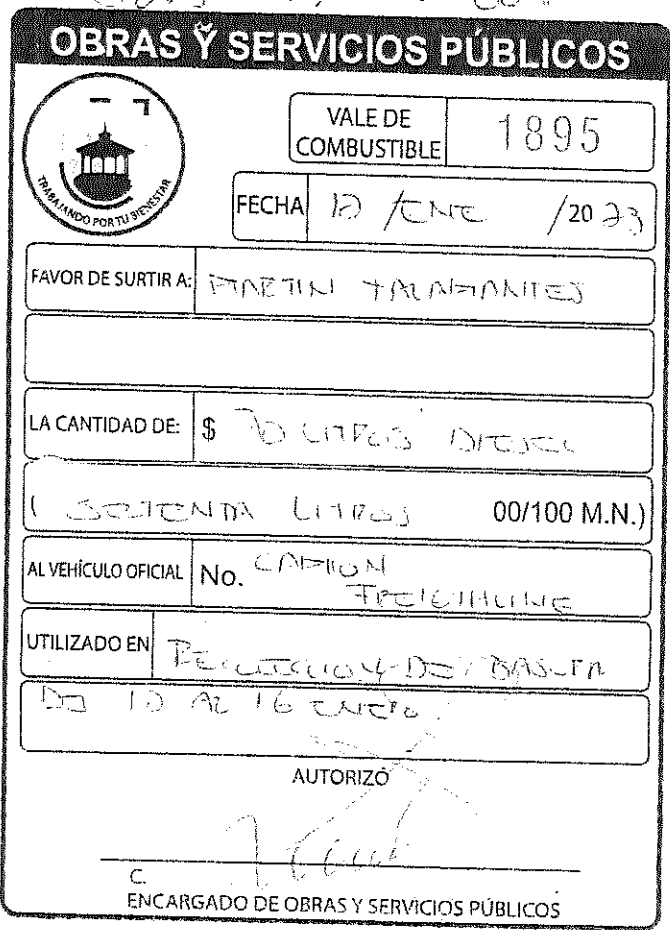 OBRAS Y SERVICIOS PÚBLICOS
TRABAJANDO POR TU BIENESTAR
VALE DE COMBUSTIBLE 1895
FECHA 12 /ENE /20 23
FAVOR DE SURTIR A: MARTIN TALAMANTES
LA CANTIDAD DE: $ 70 LITROS DIESEL
( SETENTA LITROS 00/100 M.N.)
AL VEHÍCULO OFICIAL No. CAMION
FREIGHLINE
UTILIZADO EN RECOLECCION DE BASURA
DE AL 16 ENERO.
AUTORIZÓ
C.
ENCARGADO DE OBRAS Y SERVICIOS PÚBLICOS